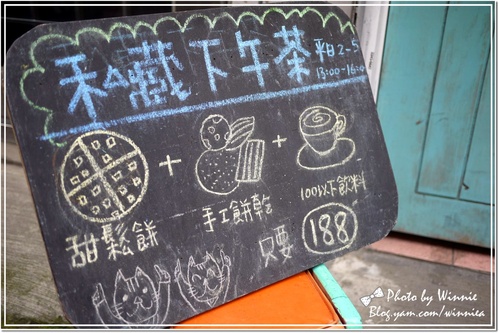 私藏下午茶
平日2-5
13:00-16:00
+
+
甜鬆餅
手工餅乾
100以下飲料
只要
188
Photo by Winnie
Blog.yam.com/winniea